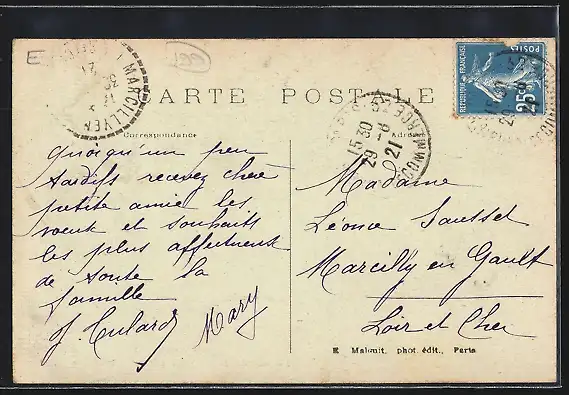 E
MARCILLY EN
CARTE POSTALE
Correspondance
Adresse
15 30
29 -6
21
RÉPUBLIQUE FRANÇAISE
POSTES
25c
quoiqu'un peu
tardifs recevez chère
petite amie les
voeux et souhaits
les plus affectueux
de toute la
famille
J. Culard
Mary
Madame
Léonce Sausset
Marcilly en Gault
Loir et Cher
E Malcuit, phot. édit., Paris